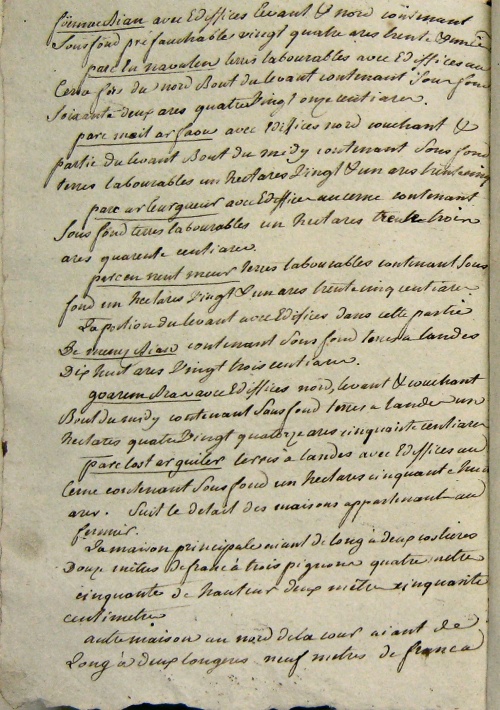 avec Ediffices levant & nord contenant
Sous fond préfauchables vingt quatre ares trente &
parc en navalen terres labourables avec Ediffices au
Cerne fors du nord Bout du levant contenant Sous fond
Soixante deux ares quatre Vingt onze centiares.
parc mait ar faou avec Ediffices nord couchant &
partie du levant Bout du midy contenant Sous fond
terres labourables un hectares Vingt & un ares trente cinq
parc ar avec Ediffices au cerne contenant
Sous fond terres labourables un hectares trente trois
ares quarente centiares.
parc en nent meur terres labourables contenant Sous
fond un hectares Vingt & un ares trente cinq centiares
La portion du levant avec Edifices dans cette partie
De contenant Sous fond terres a landes
Dix huit ares Vingt trois centiares.
avec Ediffices nord, levant & couchant
Bout du midy contenant Sous fond terres a landes un
hectares quatre Vingt quatorze ares cinquante centiares
parc tost ar guiler terres à landes avec Ediffices au
Cerne contenant Sous fond un hectares cinquante & huit
ares. Suit le detait des maisons appartenant au
fermier.
La maison principale aiant de long à deux costieres
Douze mètres de franc à trois pignons quatre mètre
cinquante de hauteur deux mètre cinquante
centimetre
autre maison au nord de la cour aiant de
Long à deux longeres neuf metres de franc a